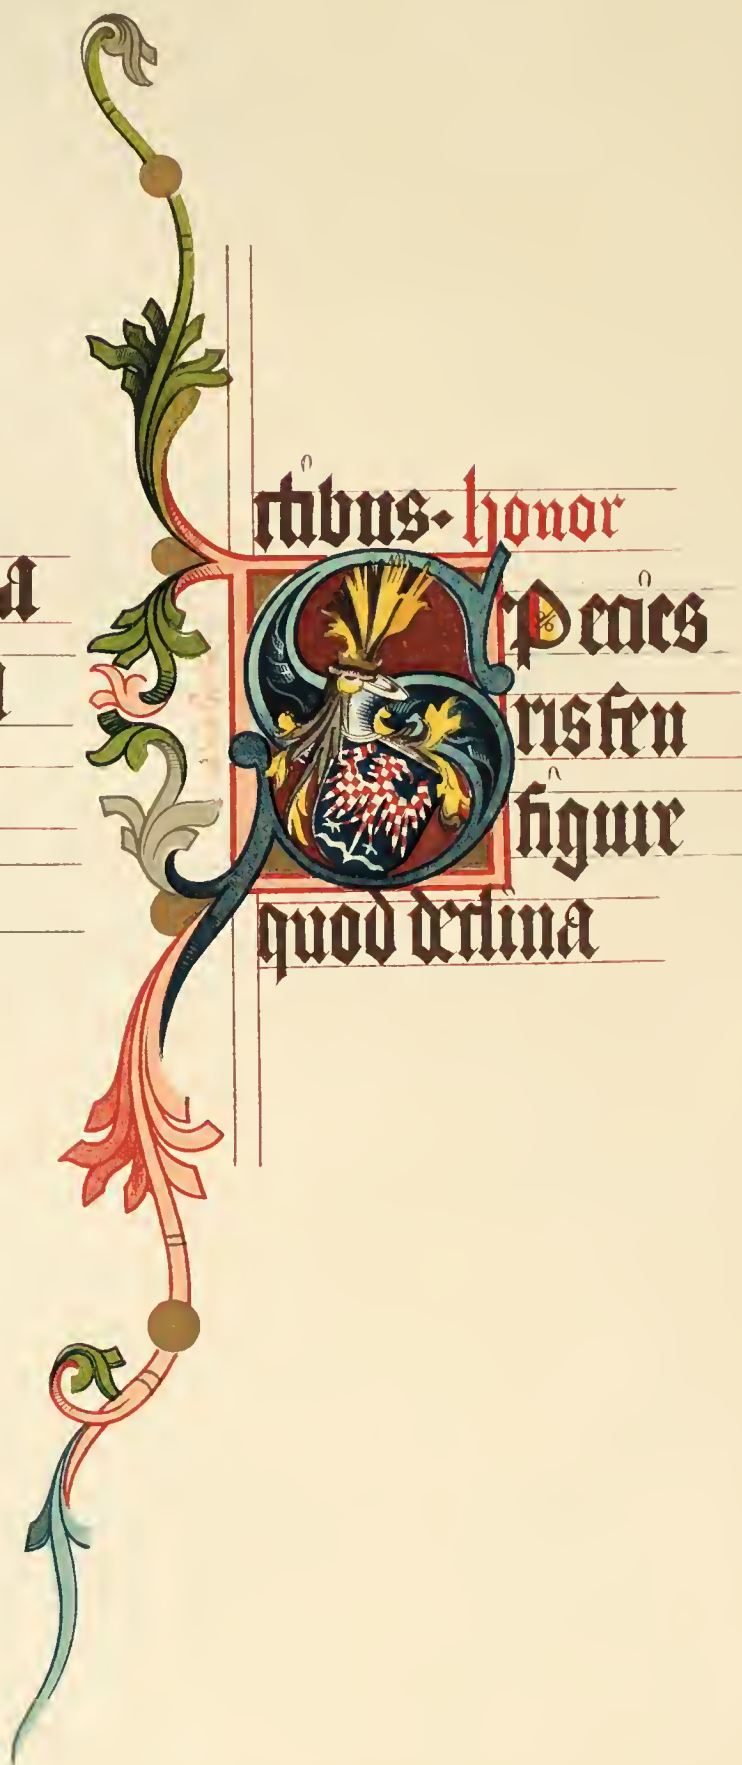 a
rtibus· honor
Species
ris seu
figure
quod declina